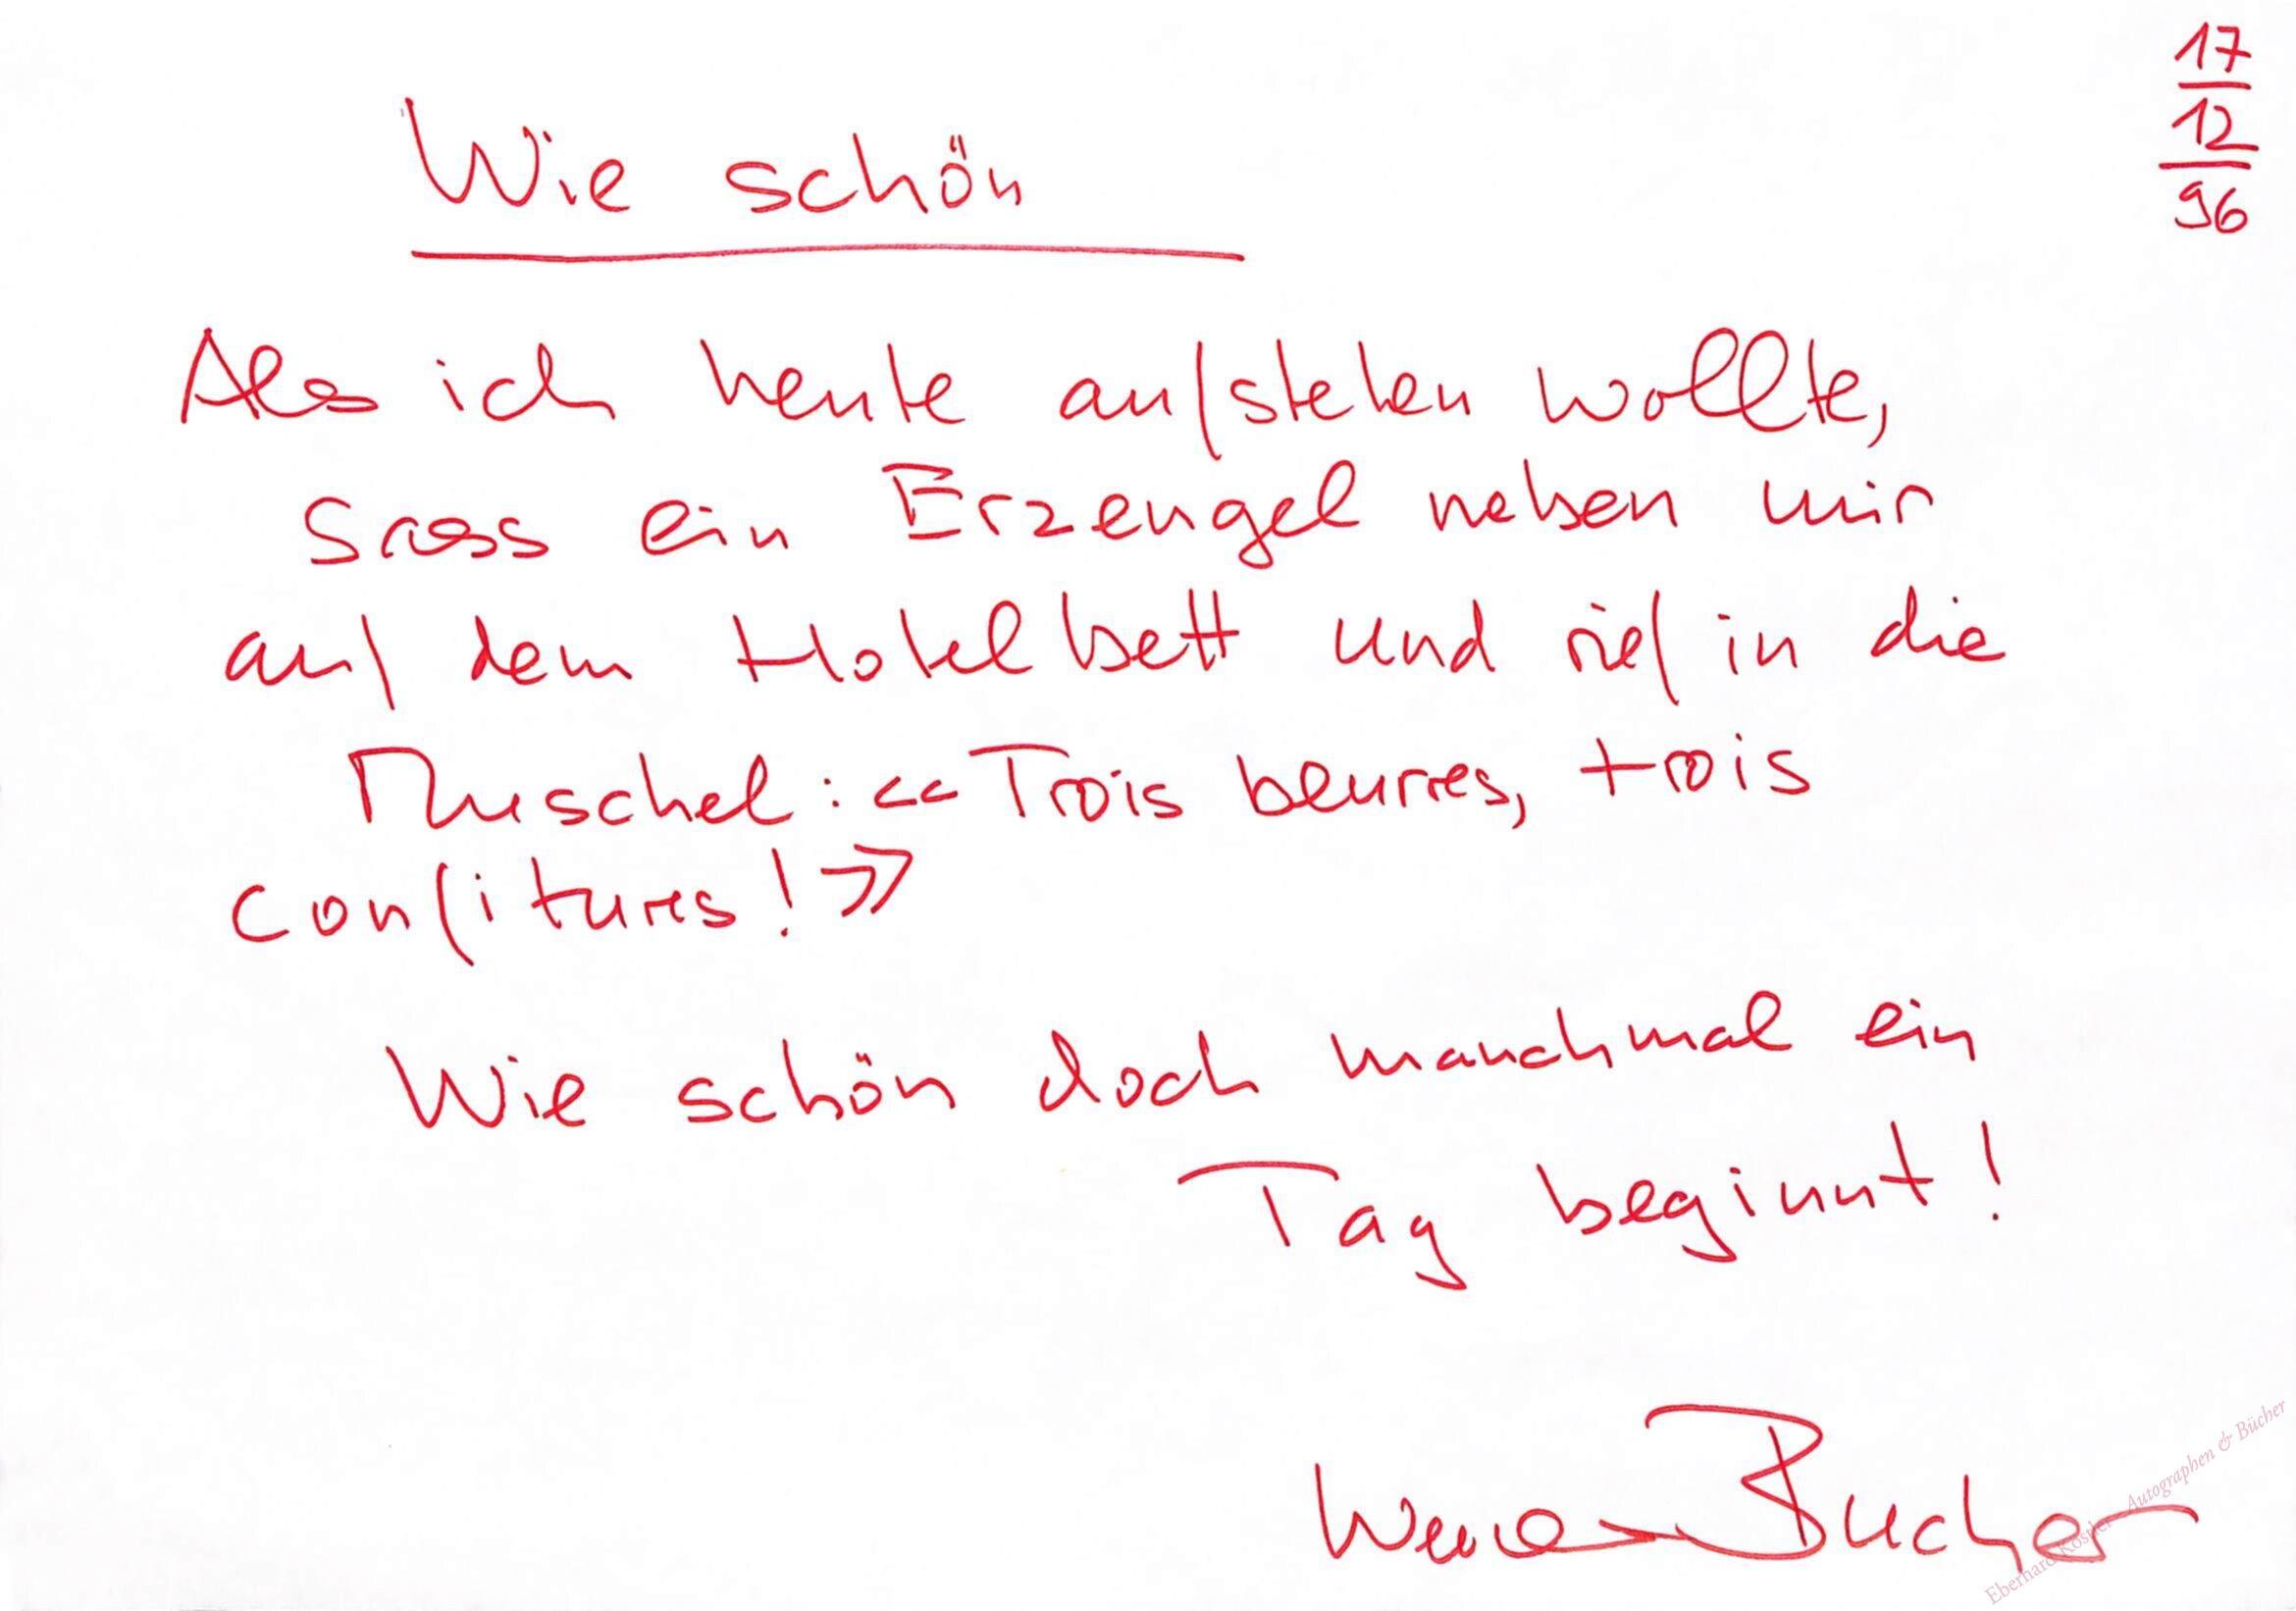 17
12
96
Wie schön
Als ich heute aufstehen wollte,
sass ein Erzengel neben mir
auf dem Hotelbett und rief in die
Muschel: <<Trois beurres, trois
confitures!>>
Wie schön doch manchmal ein
Tag beginnt!
Werner Bucher
Eberhard Köstler Autographen & Bücher